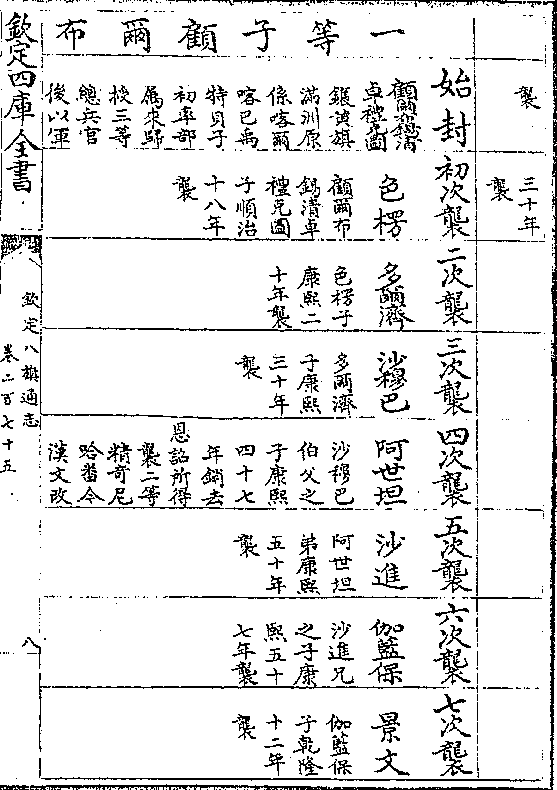 一等子顧爾布
襲
三十年
襲
始封
顧爾布錫清
卓禮克圖
鑲黃旗
滿洲原
係喀爾
喀巴禹
特貝子
初率部
屬來歸
授三等
總兵官
後以軍
初次襲
色楞
顧爾布
錫清卓
禮克圖
子順治
十八年
襲
二次襲
多爾濟
色楞子
康熙二
十年襲
三次襲
沙穆巴
多爾濟
子康熙
三十年
襲
四次襲
阿世坦
沙穆巴
伯父之
子康熙
四十七
年銷去
恩詔所得
襲二等
精奇尼
哈番今
漢文改
五次襲
沙進
阿世坦
弟康熙
五十年
襲
六次襲
伽藍保
沙進兄
之子康
熙五十
七年襲
七次襲
景文
伽藍保
子乾隆
十二年
襲
欽定四庫全書
欽定八旗通志
卷二百七十五
八